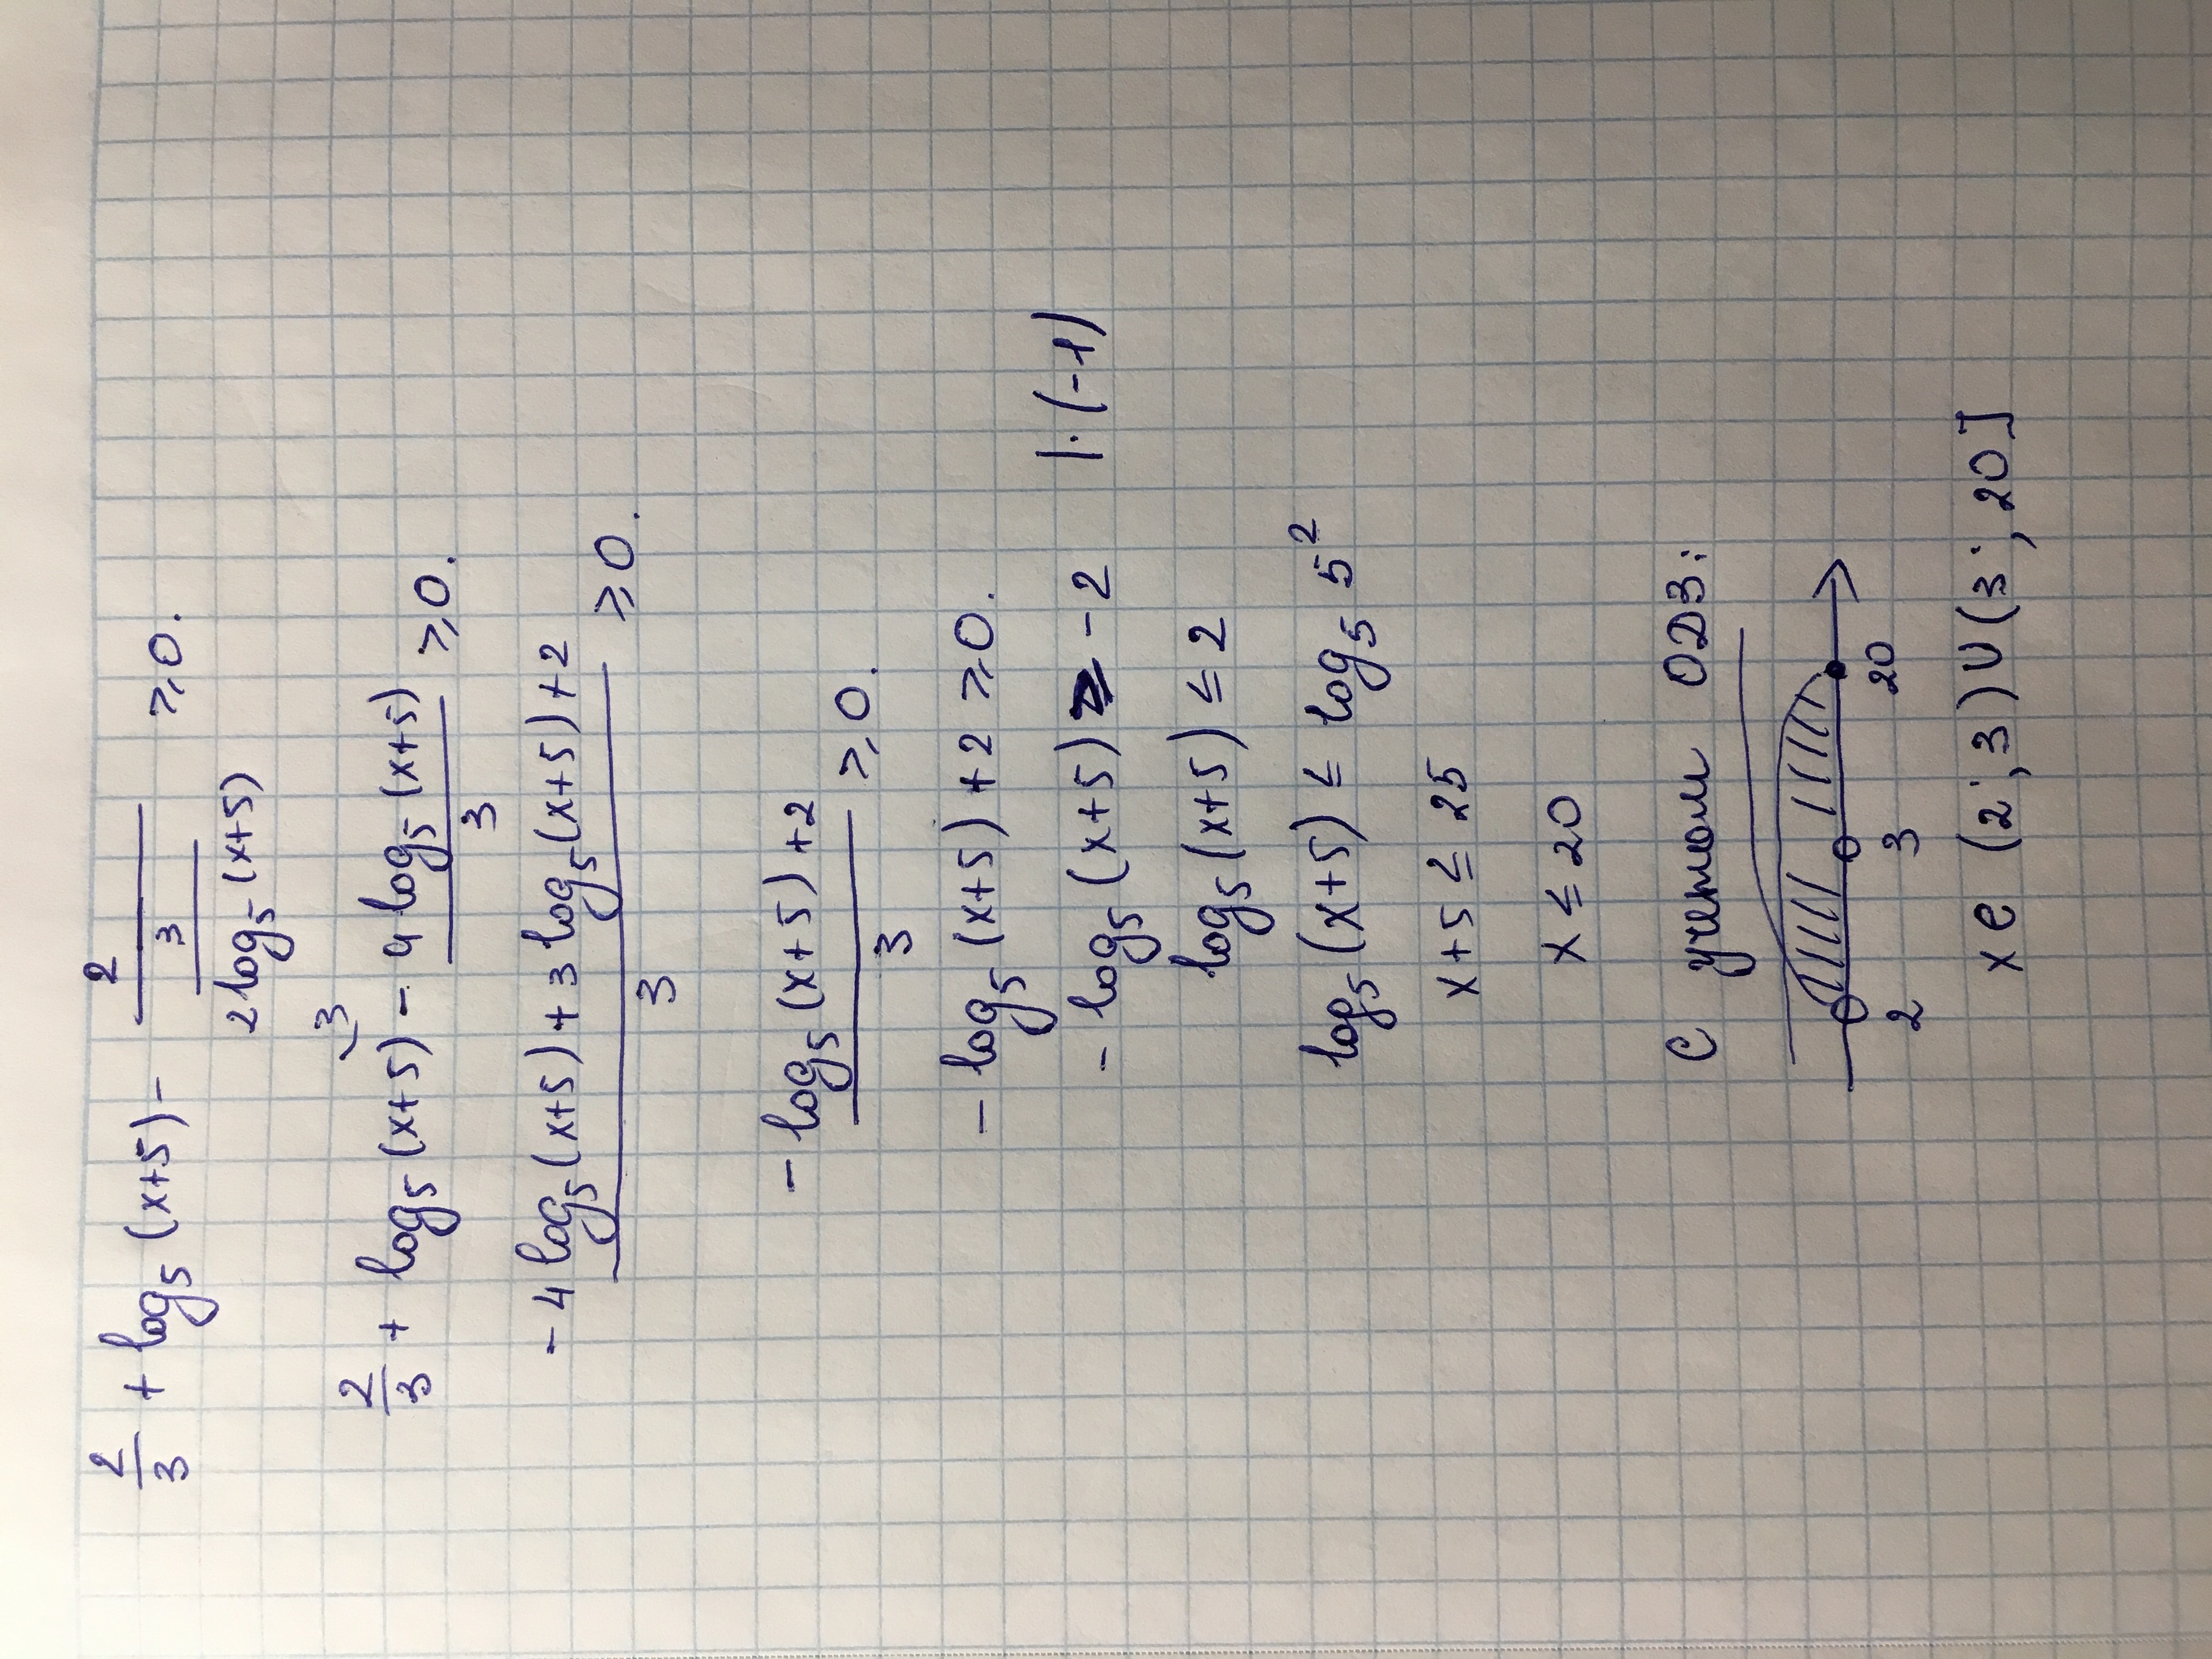 2/3 + log₅(x+5) - 2/(3/(2log₅(x+5))) ≥ 0.
2/3 + log₅(x+5)^{\3} - 4log₅(x+5)/3 ≥ 0.
(-4log₅(x+5) + 3log₅(x+5) + 2)/3 ≥ 0.
(-log₅(x+5) + 2)/3 ≥ 0.
-log₅(x+5) + 2 ≥ 0.
-log₅(x+5) ≥ -2 |·(-1)
log₅(x+5) ≤ 2
log₅(x+5) ≤ log₅ 5²
x+5 ≤ 25
x ≤ 20
С учетом ОДЗ:
2 3 20
x e (2;3)∪(3;20]